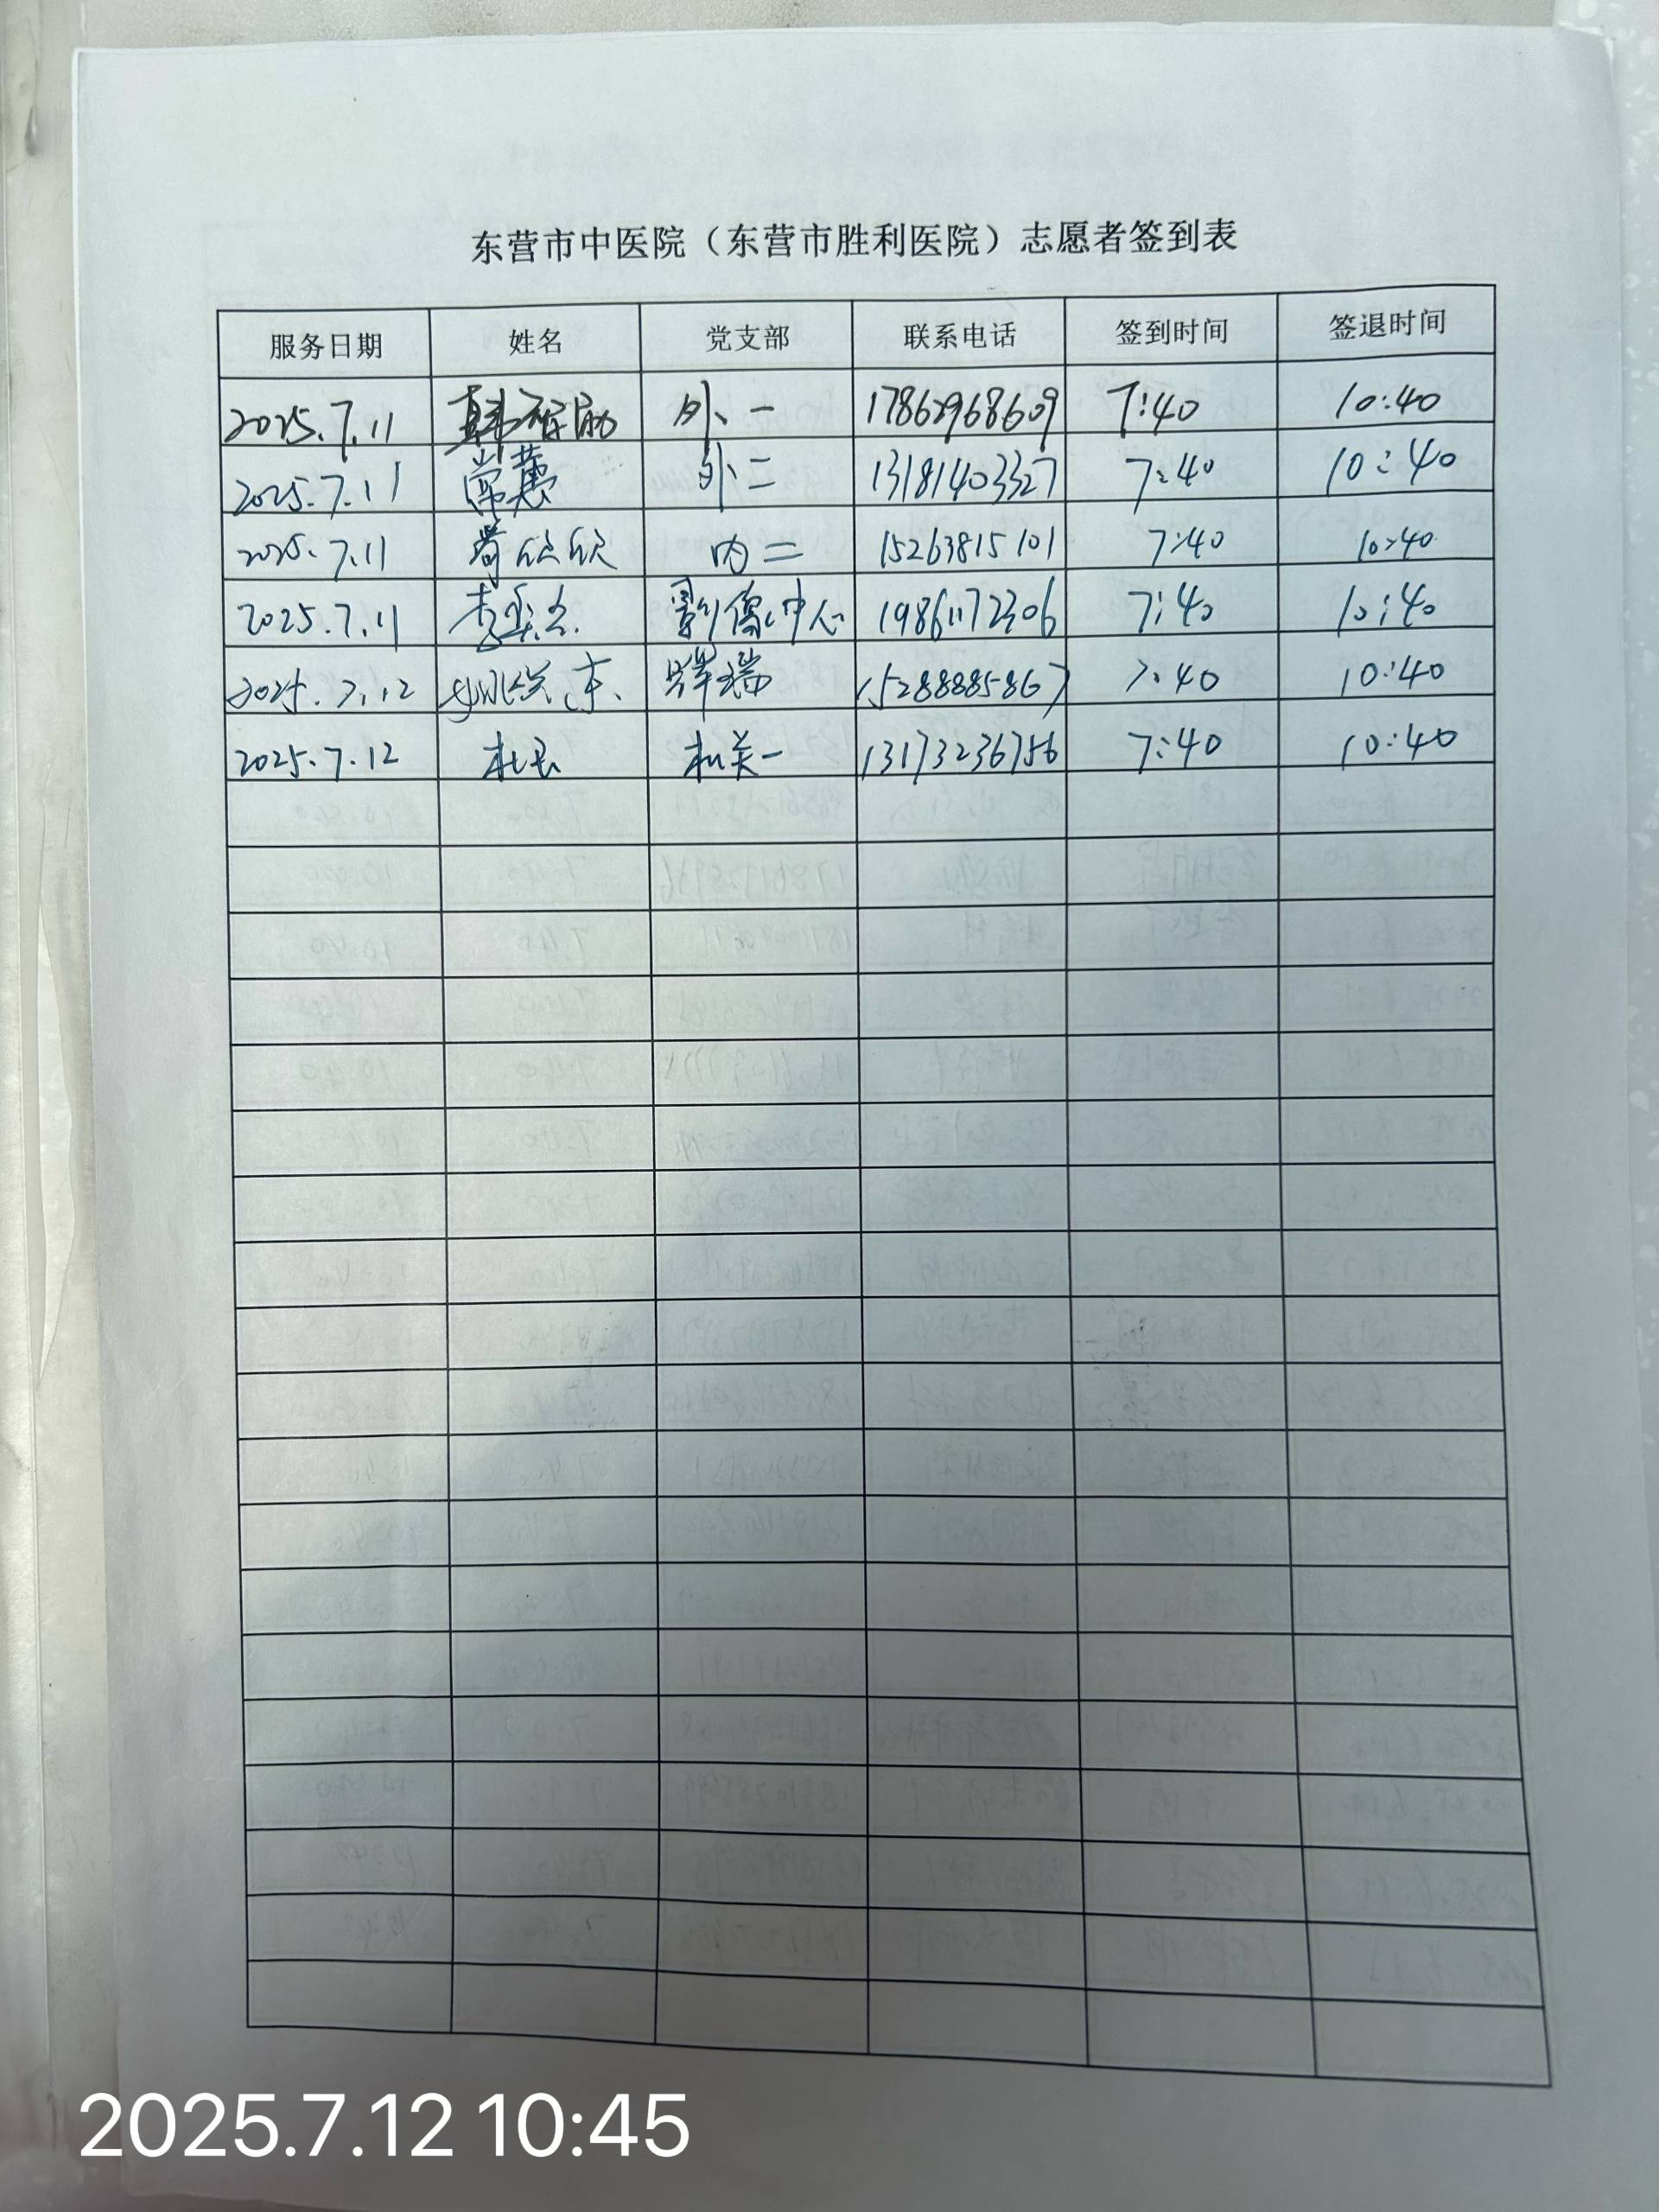 东营市中医院（东营市胜利医院）志愿者签到表
服务日期 姓名 党支部 联系电话 签到时间 签退时间
2025.7.11 外一 17862968609 7:40 10:40
2025.7.11 常慧 外二 13181403327 7:40 10:40
2025.7.11 欣欣 内二 15263815101 7:40 10:40
2025.7.11 李 影像中心 19861172306 7:40 10:40
2025.7.12 东 15288885867 7:40 10:40
2025.7.12 杜 机关一 13173236756 7:40 10:40
2025.7.12 10:45